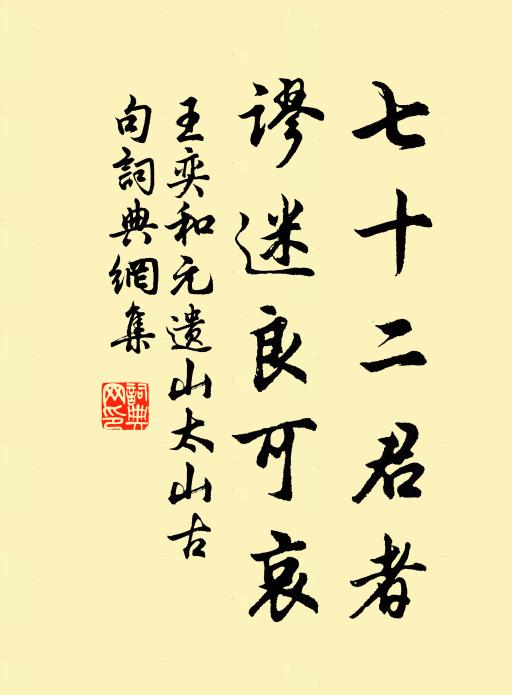 七十二君者
謬迷良可哀
王奕和元遺山太山古
句詞典網集
詞典
网印